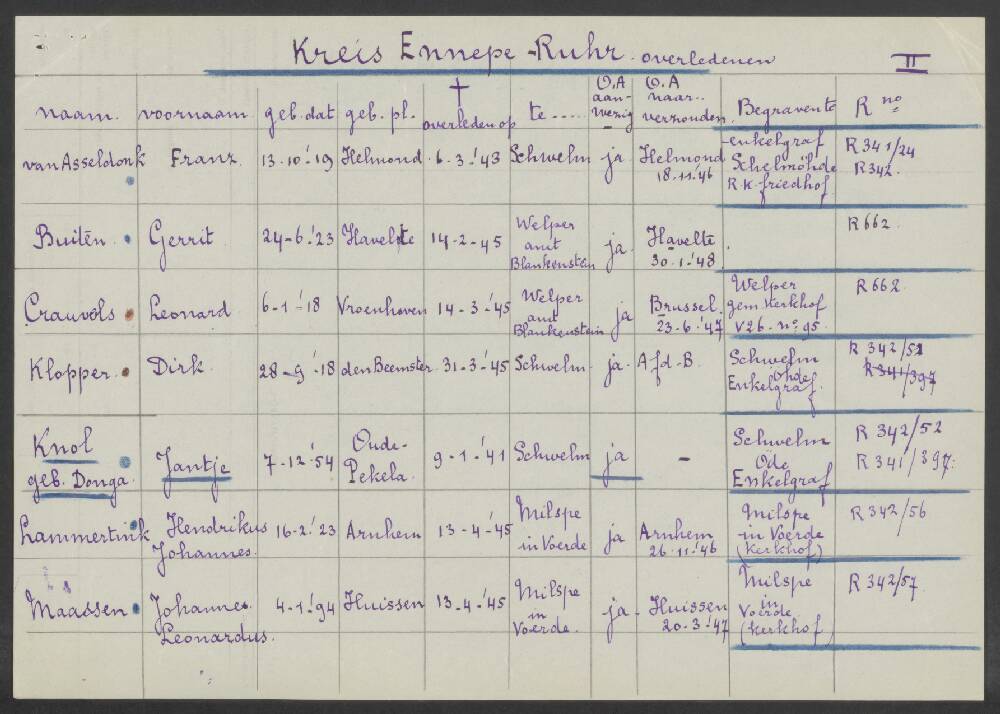 Kreis Ennepe-Ruhr. overledenen II
naam. voornaam geb. dat geb. pl. † overleden op te ..... O.A aanwezig O.A naar.. verzonden. Begraven te R no
van Asseldonk Franz. 13-10-'19 Helmond 6-3-'43 Schwelm ja Helmond 18-11-'46 enkelgraf Schelmöhde R.K. friedhof R 341/24 R 342.
Buitën. Gerrit. 24-6-'23 Havelte 14-2-45 Welper amt Blankenstein ja. Havelte 30-1-'48 R 662.
Crauvöls Leonard 6-1-'18 Vroenhoven 14-3-'45 Welper amt Blankenstein ja Brussel. 23-6-'47 Welper gem Kerkhof V 26. no. 95. R 662.
Klopper. Dirk. 28-9-'18 den Beemster 31-3-'45 Schwelm. ja. Afd-B. Schwelm ohde Enkelgraf. R 342/52 R 341/397
Knol geb. Donga. Jantje 7-12-'54 Oude-Pekela. 9-1-'41 Schwelm ja - Schwelm Öde Enkelgraf R 342/52 R 341/397.
Lammertink Hendrikus Johannes. 16-2-'23 Arnhem 13-4-'45 Milspe in Voerde ja Arnhem 26-11-'46 Milspe in Voerde (kerkhof) R 342/56
Maassen Johannes Leonardus. 4-1-'94 Huissen 13-4-'45 Milspe in Voerde. ja. Huissen 20-3-'47 Milspe in Voerde (kerkhof) R 342/57.